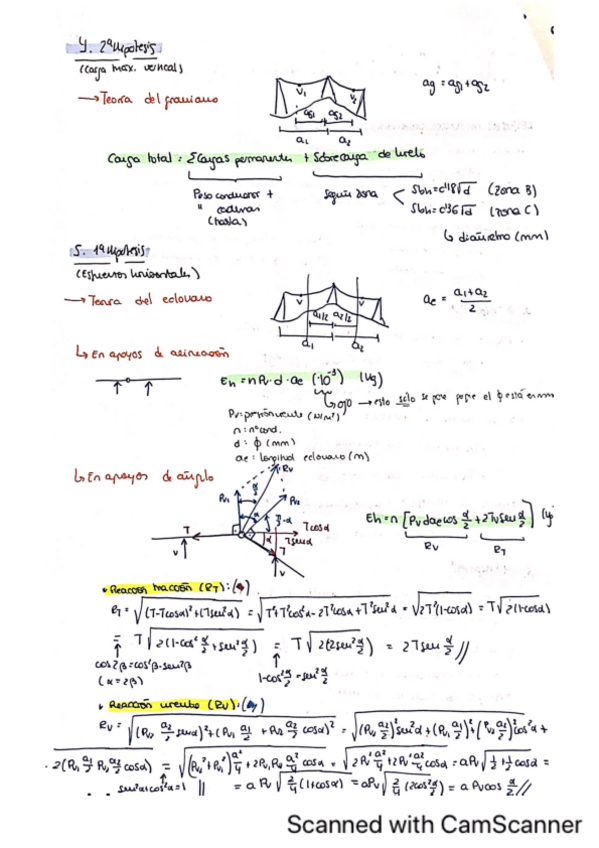 4. 2ª Hipótesis
(Carga máx. vertical)
→ Teoría del gravivano
V₁ V₂
ag₁ ag₂
a₁ a₂
ag = ag₁ + ag₂
Carga total = ΣCargas permanentes + Sobrecarga de hielo
Peso conductor +
" cadenas
Según zona
Sbh = 0'18√d (Zona B)
Sbh = 0'36√d (Zona C)
↳ diámetro (mm)
5. 1ª Hipótesis
(Esfuerzos horizontales)
→ Teoría del eolovano
V V
a₁/2 a₂/2
a₁ a₂
ae = (a₁ + a₂)/2
↳ En apoyos de alineación
Eh = n Pv · d · ae (·10⁻³) (kg)
↳ ojo → esto solo se pone porque el ϕ está en mm
n: nº cond.
d: ϕ (mm)
ae: longitud eolovano (m)
↳ En apoyos de ángulo
Rv
Pv₁ Pv₂
T Tcosα
Tsenα
T
V V
Eh = n [Pv d ae cos α/2 + 2T sen α/2]
Rv RT
• Reacción tracción (RT):
RT = √((T-Tcosα)² + (Tsenα)²) = √(T² + T²cos²α - 2T²cosα + T²sen²α) = √(2T²(1-cosα)) = T√(2(1-cosα))
= T√(2(1-cos²α/2 + sen²α/2)) = T√(2(2sen²α/2)) = 2T sen α/2 //
cos2β = cos²β - sen²β
(α = 2β)
1-cos²α/2 = sen²α/2
• Reacción viento (Rv):
Rv = √((Pv₂ a₂/2 senα)² + (Pv₁ a₁/2 + Pv₂ a₂/2 cosα)²) = √((Pv₂ a₂/2)² sen²α + (Pv₁ a₁/2)² + (Pv₂ a₂/2)² cos²α +
· 2(Pv₁ a₁/2 Pv₂ a₂/2 cosα) = √((Pv₂² + Pv₁²) a²/4 + 2Pv₁Pv₂ a²/4 cosα = √(2Pv² a²/4 + 2Pv² a²/4 cosα = aPv√(1/2 + 1/2 cosα =
sen²α + cos²α = 1 // = a Pv √(2/4 (1+cosα) = aPv√(2/4 (2cos²α/2) = a Pv cos α/2 //
Scanned with CamScanner